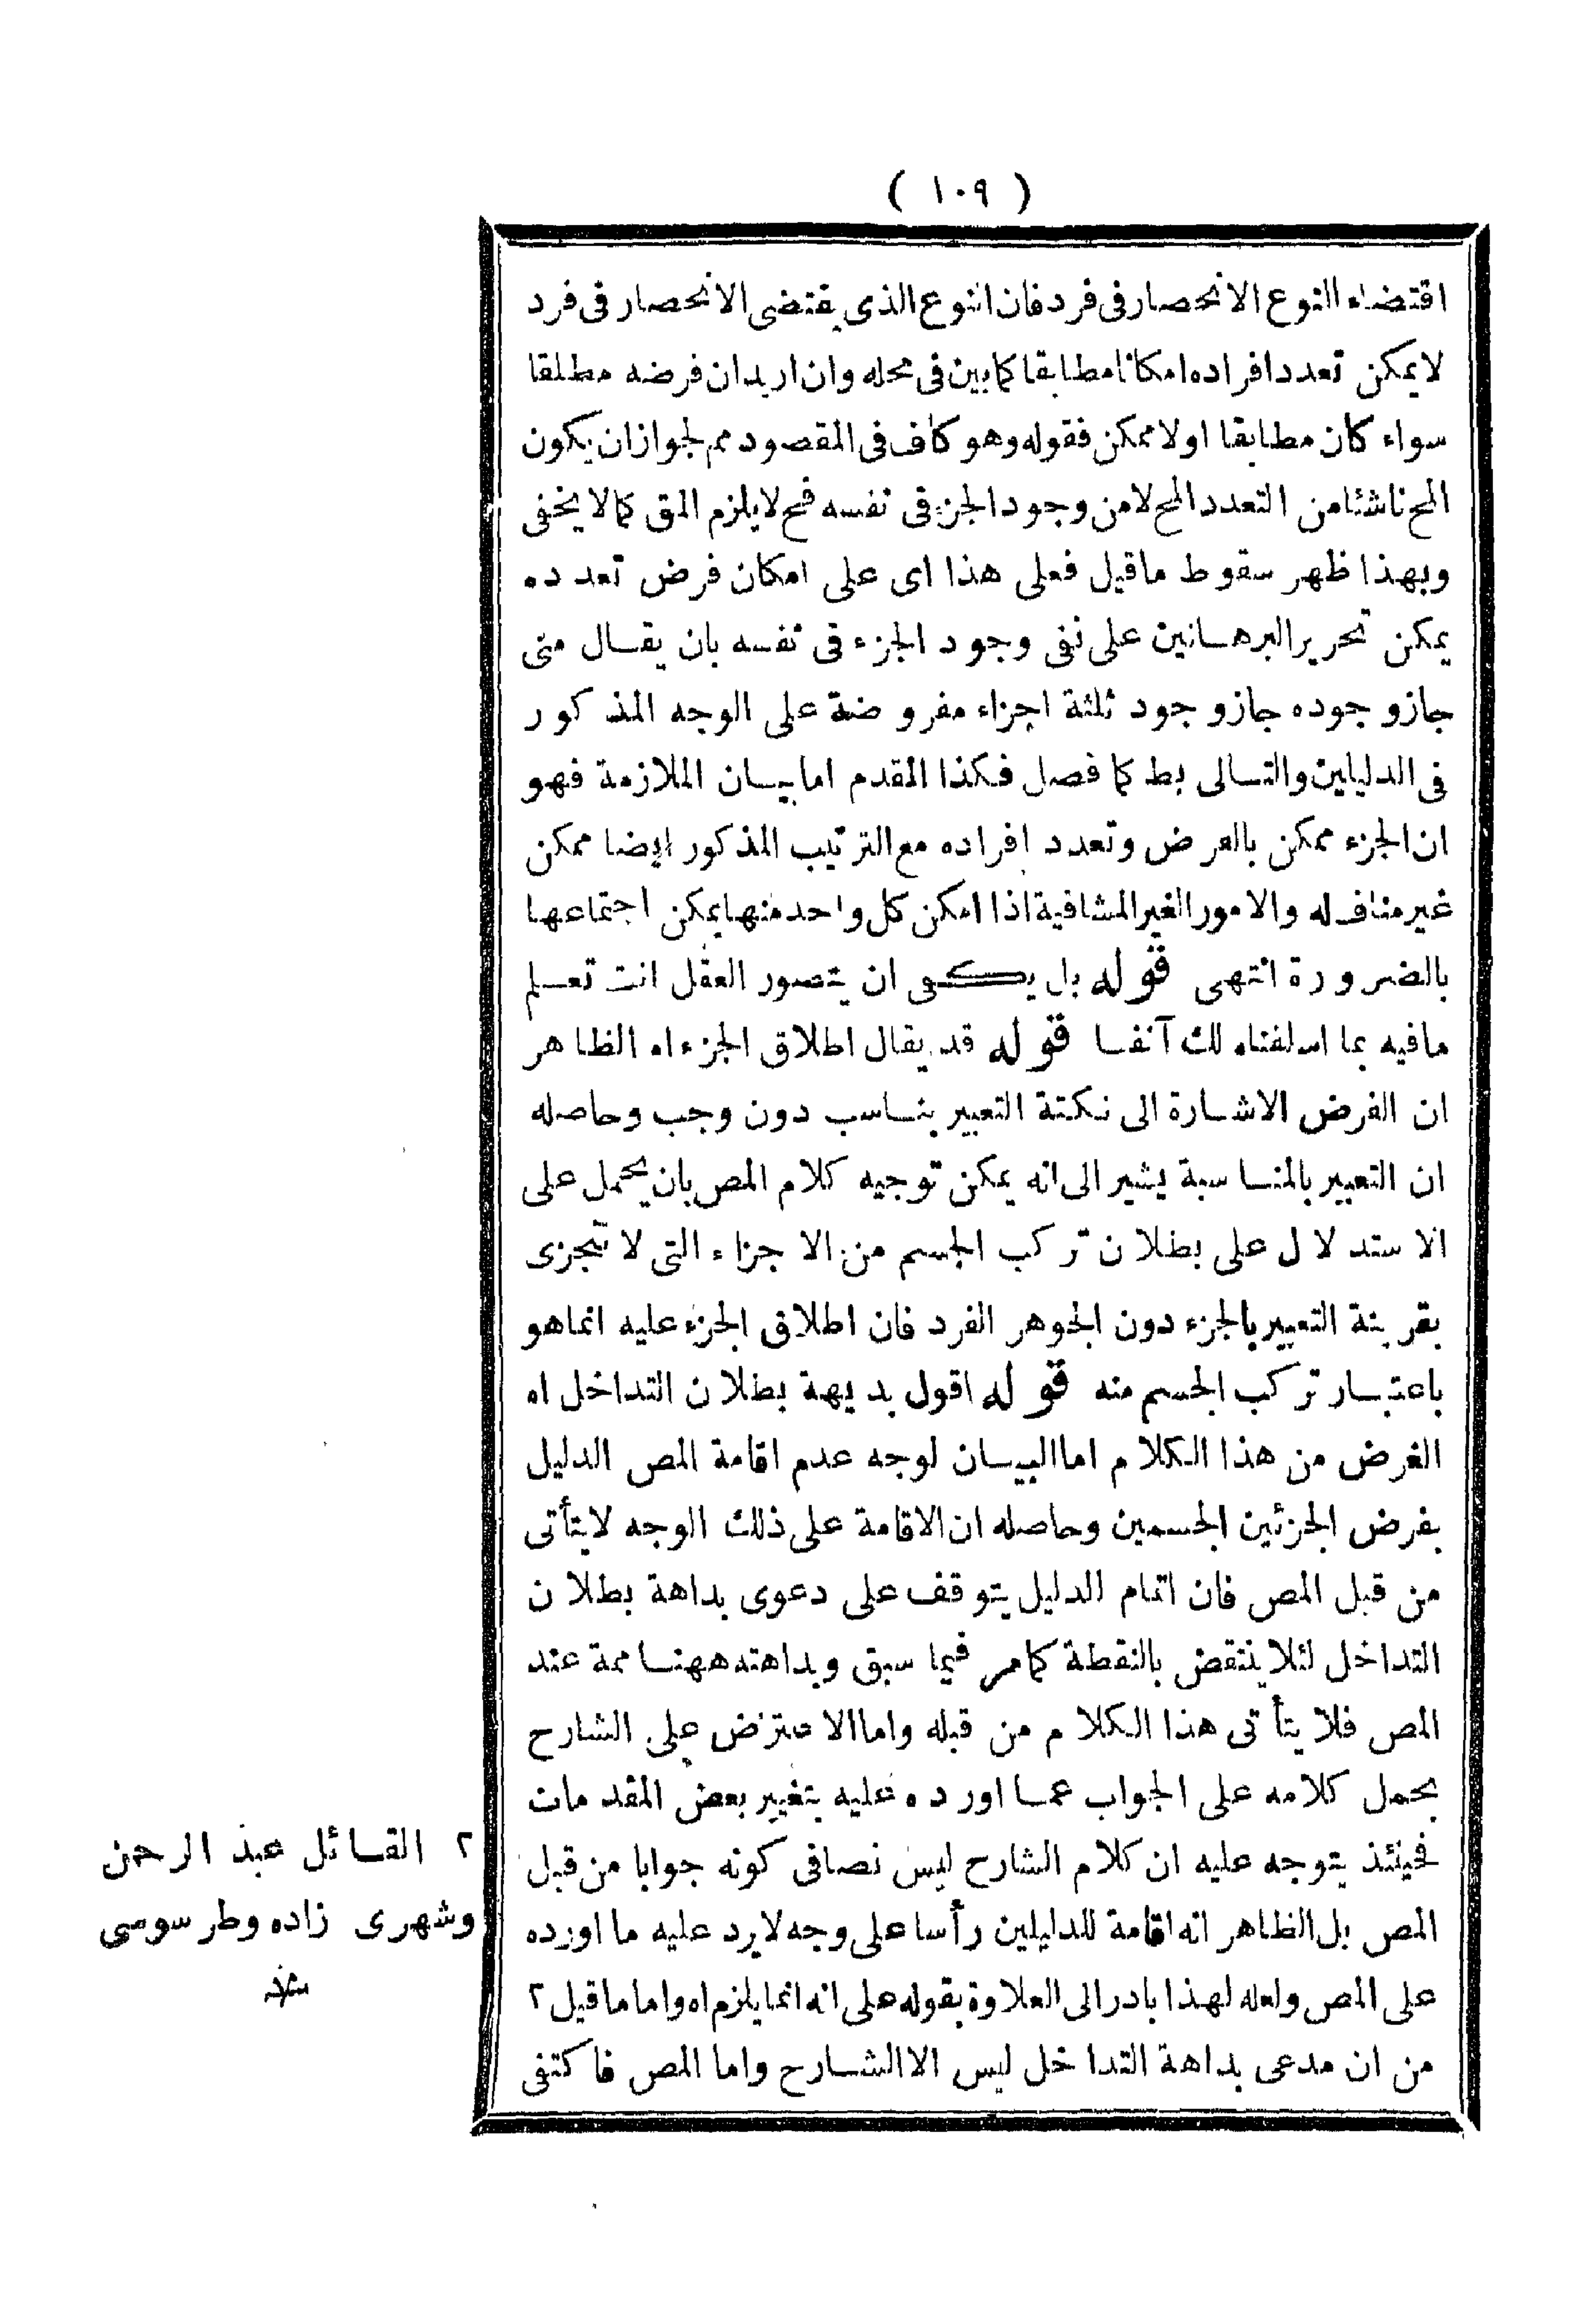 ( ١٠٩ )
اقتضاء النوع الانحصار فى فرد فان النوع الذى يقتضى الانحصار فى فرد
لا يمكن تعدد افراده امكانا مطابقا كما بين فى محله وان اريد ان فرضه مطلقا
سواء كان مطابقا اولا ممكن فقوله وهو كاف فى المقصود مم لجواز ان يكون
المح ناشئا من التعدد المح لا من وجود الجزء فى نفسه فح لا يلزم المق كما لا يخفى
وبهذا ظهر سقوط ما قيل فعلى هذا اى على امكان فرض تعدده
يمكن تحرير البرهانين على نفى وجود الجزء فى نفسه بان يقال متى
جاز وجوده جاز وجود ثلثة اجزاء مفروضة على الوجه المذكور
فى الدليلين والتالى بط كما فصل فكذا المقدم اما بيان الملازمة فهو
ان الجزء ممكن بالفرض وتعدد افراده مع الترتيب المذكور ايضا ممكن
غير مناف له والامور الغير المنافية اذا امكن كل واحد منها يمكن اجتماعها
بالضرورة انتهى قوله بل يكفى ان يتصور العقل انت تعلم
مافيه بما اسلفناه لك آنفا قوله قد يقال اطلاق الجزء اه الظاهر
ان الغرض الاشارة الى نكتة التعبير بناسب دون وجب وحاصله
ان التعبير بالمناسبة يشير الى انه يمكن توجيه كلام المص بان يحمل على
الاستدلال على بطلان تركب الجسم من الاجزاء التى لا تتجزى
بقرينة التعبير بالجزء دون الجوهر الفرد فان اطلاق الجزء عليه انما هو
باعتبار تركب الجسم منه قوله اقول بديهة بطلان التداخل اه
الغرض من هذا الكلام اما البيان لوجه عدم اقامة المص الدليل
بفرض الجزئين الجسمين وحاصله ان الاقامة على ذلك الوجه لا يتأتى
من قبل المص فان اتمام الدليل يتوقف على دعوى بداهة بطلان
التداخل لئلا ينتقض بالنقطة كما مر فيما سبق وبداهته ههنا ممة عند
المص فلا يتأتى هذا الكلام من قبله واما الاعتراض على الشارح
بحمل كلامه على الجواب عما اورده عليه بتغيير بعض المقدمات
فحينئذ يتوجه عليه ان كلام الشارح ليس نصا فى كونه جوابا من قبل
المص بل الظاهر انه اقامة للدليلين رأسا على وجه لا يرد عليه ما اورده
على المص ولعله لهذا بادر الى العلاوة بقوله على انه انما يلزم اه واما ما قيل ٢
من ان مدعى بداهة التداخل ليس الا الشارح واما المص فاكتفى
٢ القائل عبد الرحمن
وشهرى زاده وطرسوسى